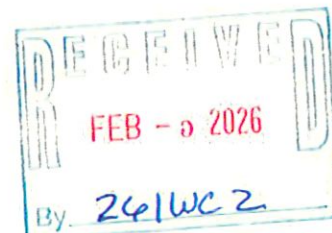 RECEIVED
FEB - 5 2026
By 261WC2